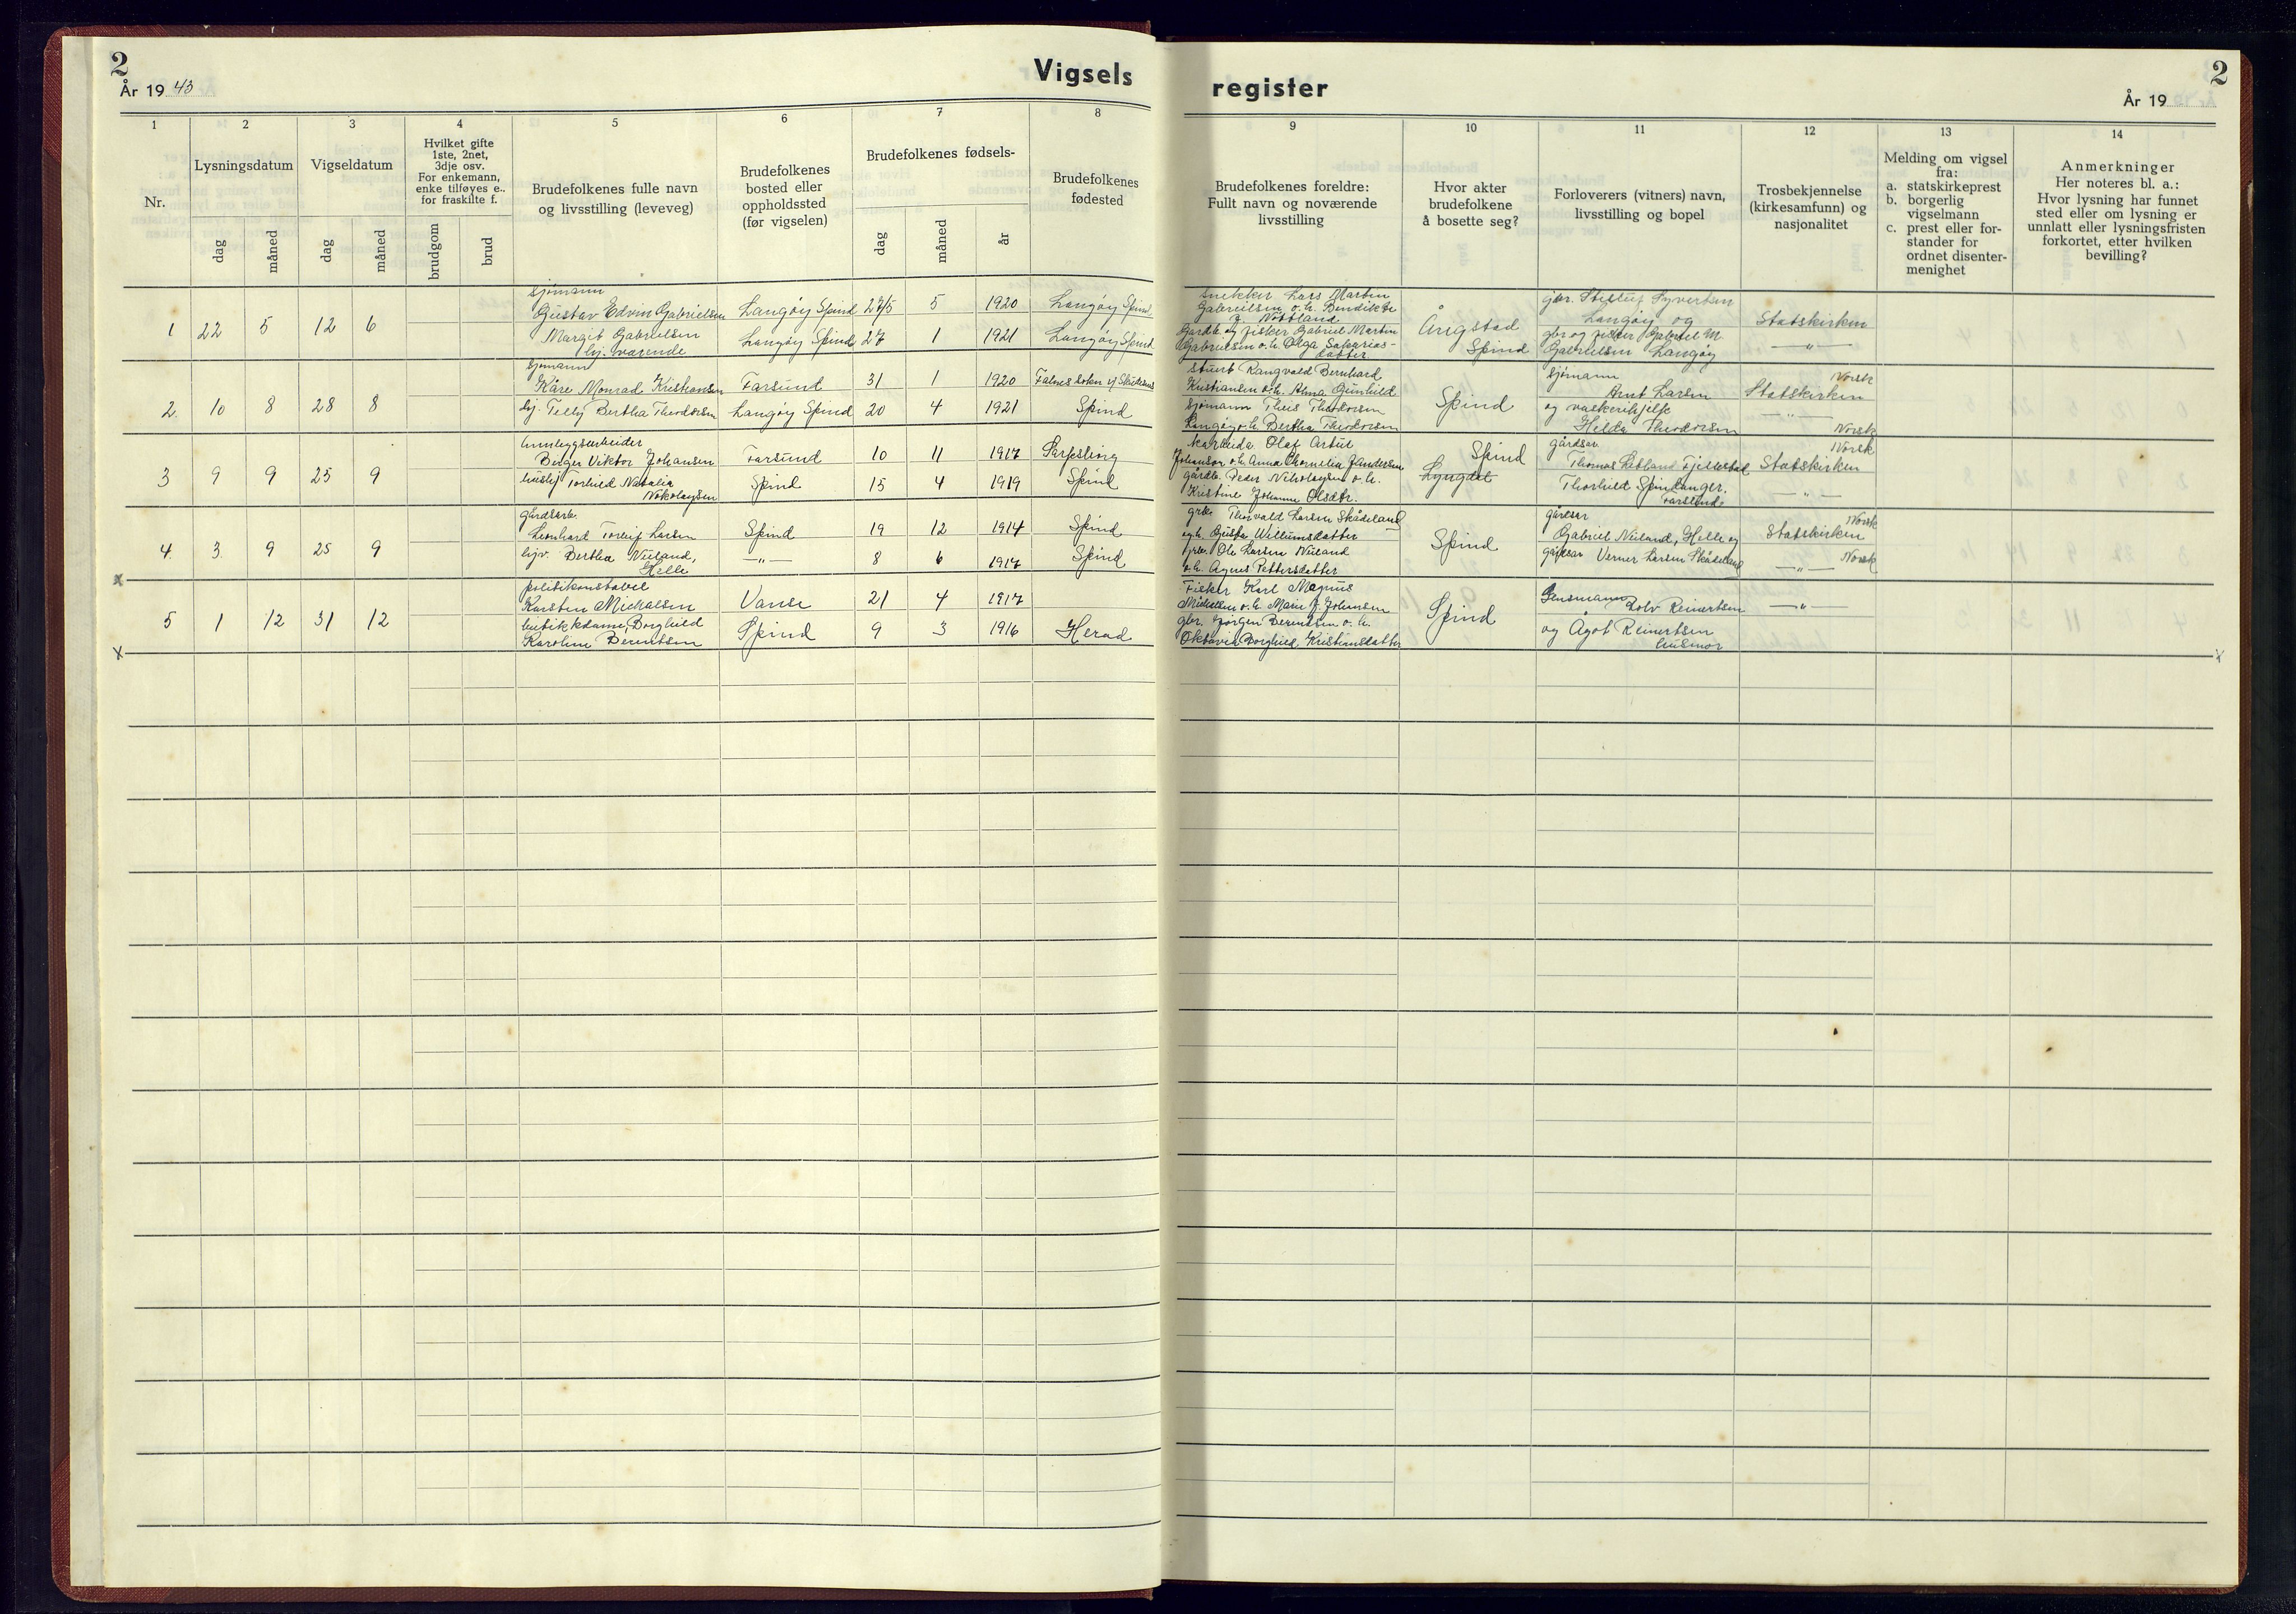 2
År 19 43
Vigsels
register
2
År 19
1
2
3
4
5
6
7
8
9
10
11
12
13
14
Nr.
Lysningsdatum
dag
måned
Vigseldatum
dag
måned
Hvilket gifte
1ste, 2net,
3dje osv.
For enkemann,
enke tilføyes e..
for fraskilte f.
brudgom
brud
Brudefolkenes fulle navn
og livsstilling (leveveg)
Brudefolkenes
bosted eller
oppholdssted
(før vigselen)
Brudefolkenes fødsels-
dag
måned
år
Brudefolkenes
fødested
Brudefolkenes foreldre:
Fullt navn og noværende
livsstilling
Hvor akter
brudefolkene
å bosette seg?
Forloverers (vitners) navn,
livsstilling og bopel
Trosbekjennelse
(kirkesamfunn) og
nasjonalitet
Melding om vigsel
fra:
a. statskirkeprest
b. borgerlig
vigselmann
c. prest eller for-
stander for
ordnet disenter-
menighet
Anmerkninger
Her noteres bl. a.:
Hvor lysning har funnet
sted eller om lysning er
unnlatt eller lysningsfristen
forkortet, etter hvilken
bevilling?
1 22 5 12 6
sjømann
Gustav Edvin Gabrielsen Langøy Spind 27/5 5 1920 Langøy Spind
Margit Gabrielsen Langøy Spind 27 1 1921 Langøy Spind
hj. værende
Snekker Lars Martin
Gabrielsen o.h. Bendikte
J. Nottland
Gardb. og fisker Gabriel Martin
Gabrielsen o.h. Olga Sakarias-
datter
Ångstad
Spind
Syvertsen
Langøy og
gbr og fisker Gabriel M.
Gabrielsen Langøy
Statskirken
— " —
2. 10 8 28 8
sjømann
Kåre Monrad Kristiansen Farsund 31 1 1920 Falnes sokn
hj. Telly Bertha Theodorsen Langøy Spind 20 4 1921 Spind
stuert Rangvald Bernhard
Kristiansen o.h. Alma Gunhild
sjømann Theis Theodorsen
Langøy o.h. Bertha Theodorsen
Spind
sjømann
Arnt Larsen
og vaskerihjelp
Helda Theodorsen
Norsk
Statskirken
— " —
Norsk
3 9 9 25 9
annleggsarbeider
Birger Viktor Johansen Farsund 10 11 1917
Torhild Natalia Spind 15 4 1919 Spind
Nikolaysen
Olaf
Johanson o.h. Anna
gårdb. Peder Nikolaysen o.h.
Kristine Johanne Olsdtr.
Spind
Lyngdal
gårdsar.
Thomas Fjellestad
Thorhild Spindanger.
Farsund.
Norsk
Statskirken
— " —
4. 3. 9 25 9
gårdsarb.
Leonhard Torleif Larsen Spind 19 12 1914 Spind
hjv. Bertha Niland, — " — 8 6 1917 Spind
Helle
grb. Thorvald Larsen Skådeland
og h. Gusta Willumsdatter
grb. Ole Larsen Niland
o.h. Agnes Pettersdatter
Spind
gårdsar
Gabriel Niland, Helle og
gårdsar Verner Larsen Skådeland
Norsk
Statskirken
Norsk
— " —
x
5 1 12 31 12
politikonstabel
Karsten Mickalsen Vanse 21 4 1917
butikkdame, Borghild Spind 9 3 1916 Herad
Karoline Berentsen
Fisker Karl Magnus
Mickelsen o.h. Marie J. Johansen
gbr. Jørgen Berentsen o.h.
Oktavia Borghild Kristiansdatter
Spind
Lensmann Rolv Reinertsen
og Ågot Reinertsen
husmor
— " —
x
x